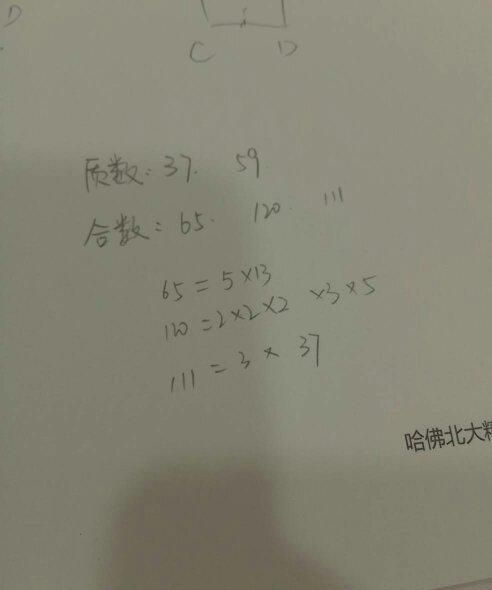 D
C D
质数: 37. 59.
合数: 65. 120. 111
65 = 5×13
120 = 2×2×2 ×3×5
111 = 3 × 37
哈佛北大精